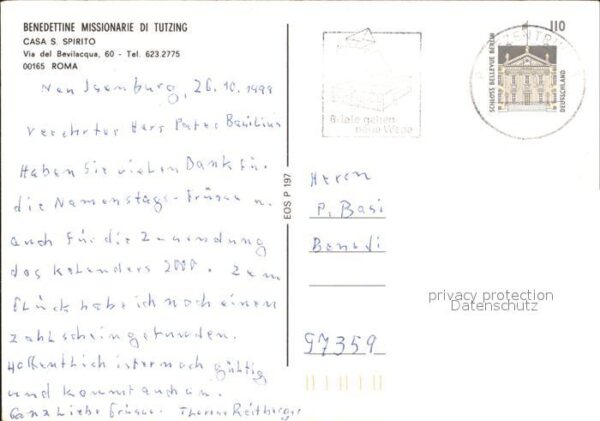 BENEDETTINE MISSIONARIE DI TUTZING
CASA S. SPIRITO
Via del Bevilacqua, 60 - Tel. 623.2775
00165 ROMA
Neu Isenburg, 26.10.1999
Verehrter Herr Pater Basilius
Haben Sie vielen Dank für
die Namenstags-Grüsse u.
auch für die Zusendung
des Kalenders 2000. Zum
Glück habe ich noch einen
Zahlschein gefunden.
Hoffentlich ist er noch gültig
und kommt auch an.
Ganz liebe Grüsse Therese Reitberger
EOS P 197
Briefe gehen
neue Wege
BRIEFZENTRUM
110
SCHLOSS BELLEVUE BERLIN
DEUTSCHLAND
Herrn
P. Basi
Benedi
97359
privacy protection
Datenschutz